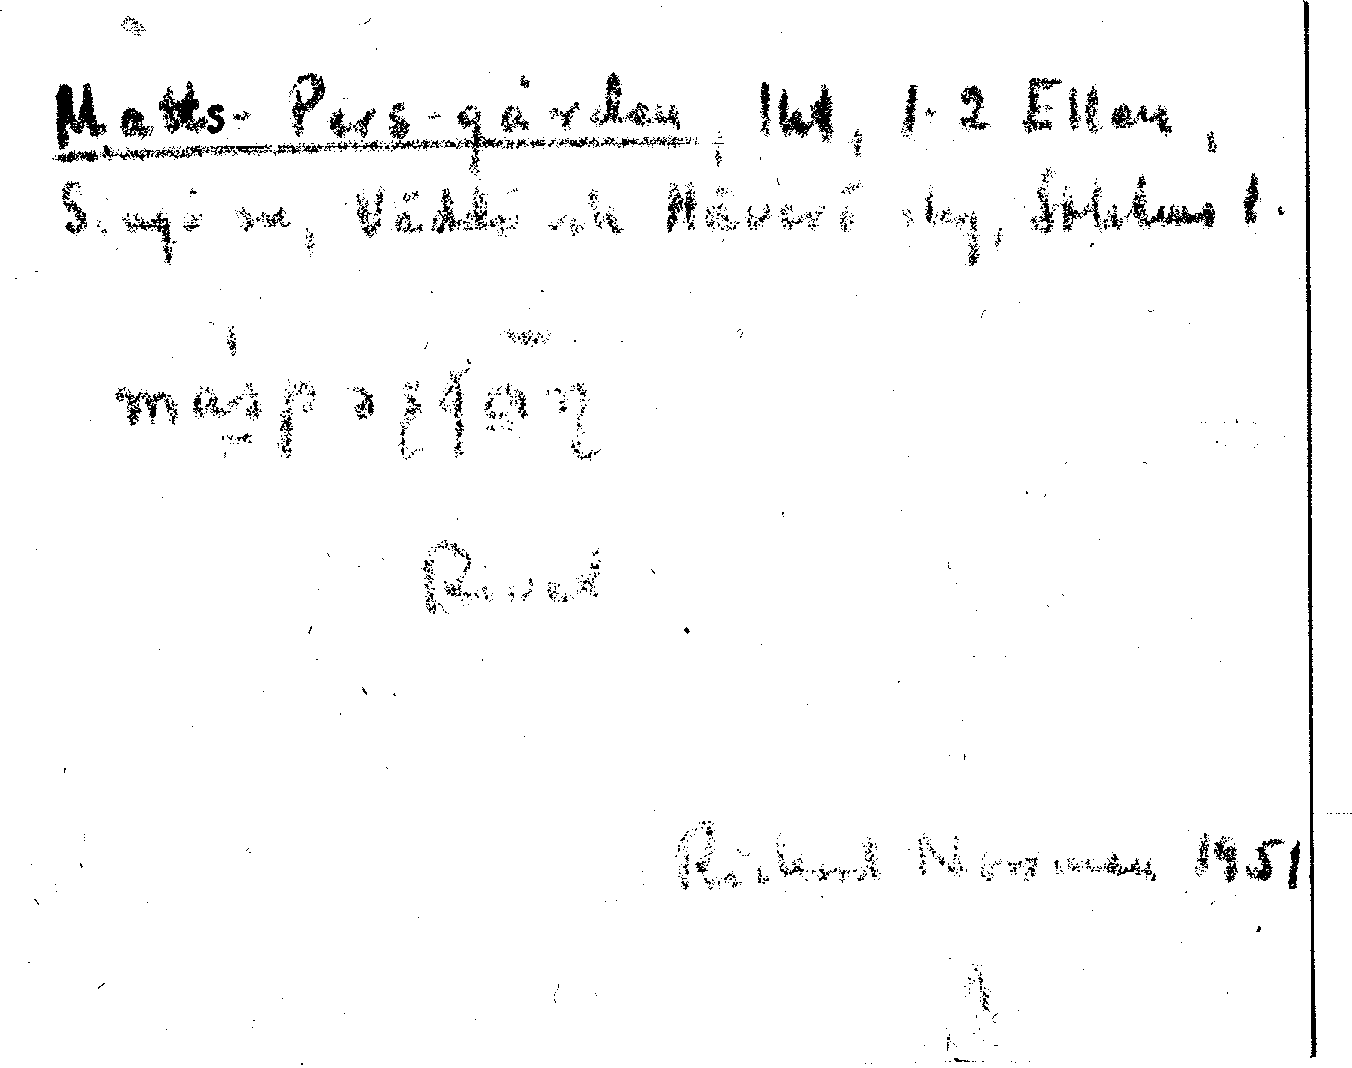 Matts-Pers-gården, 1kt, 1-2 Ellen,
Singö sn, Väddö och Häverö skg, Sthlms l.
Rivet
Richard Norrman 1951